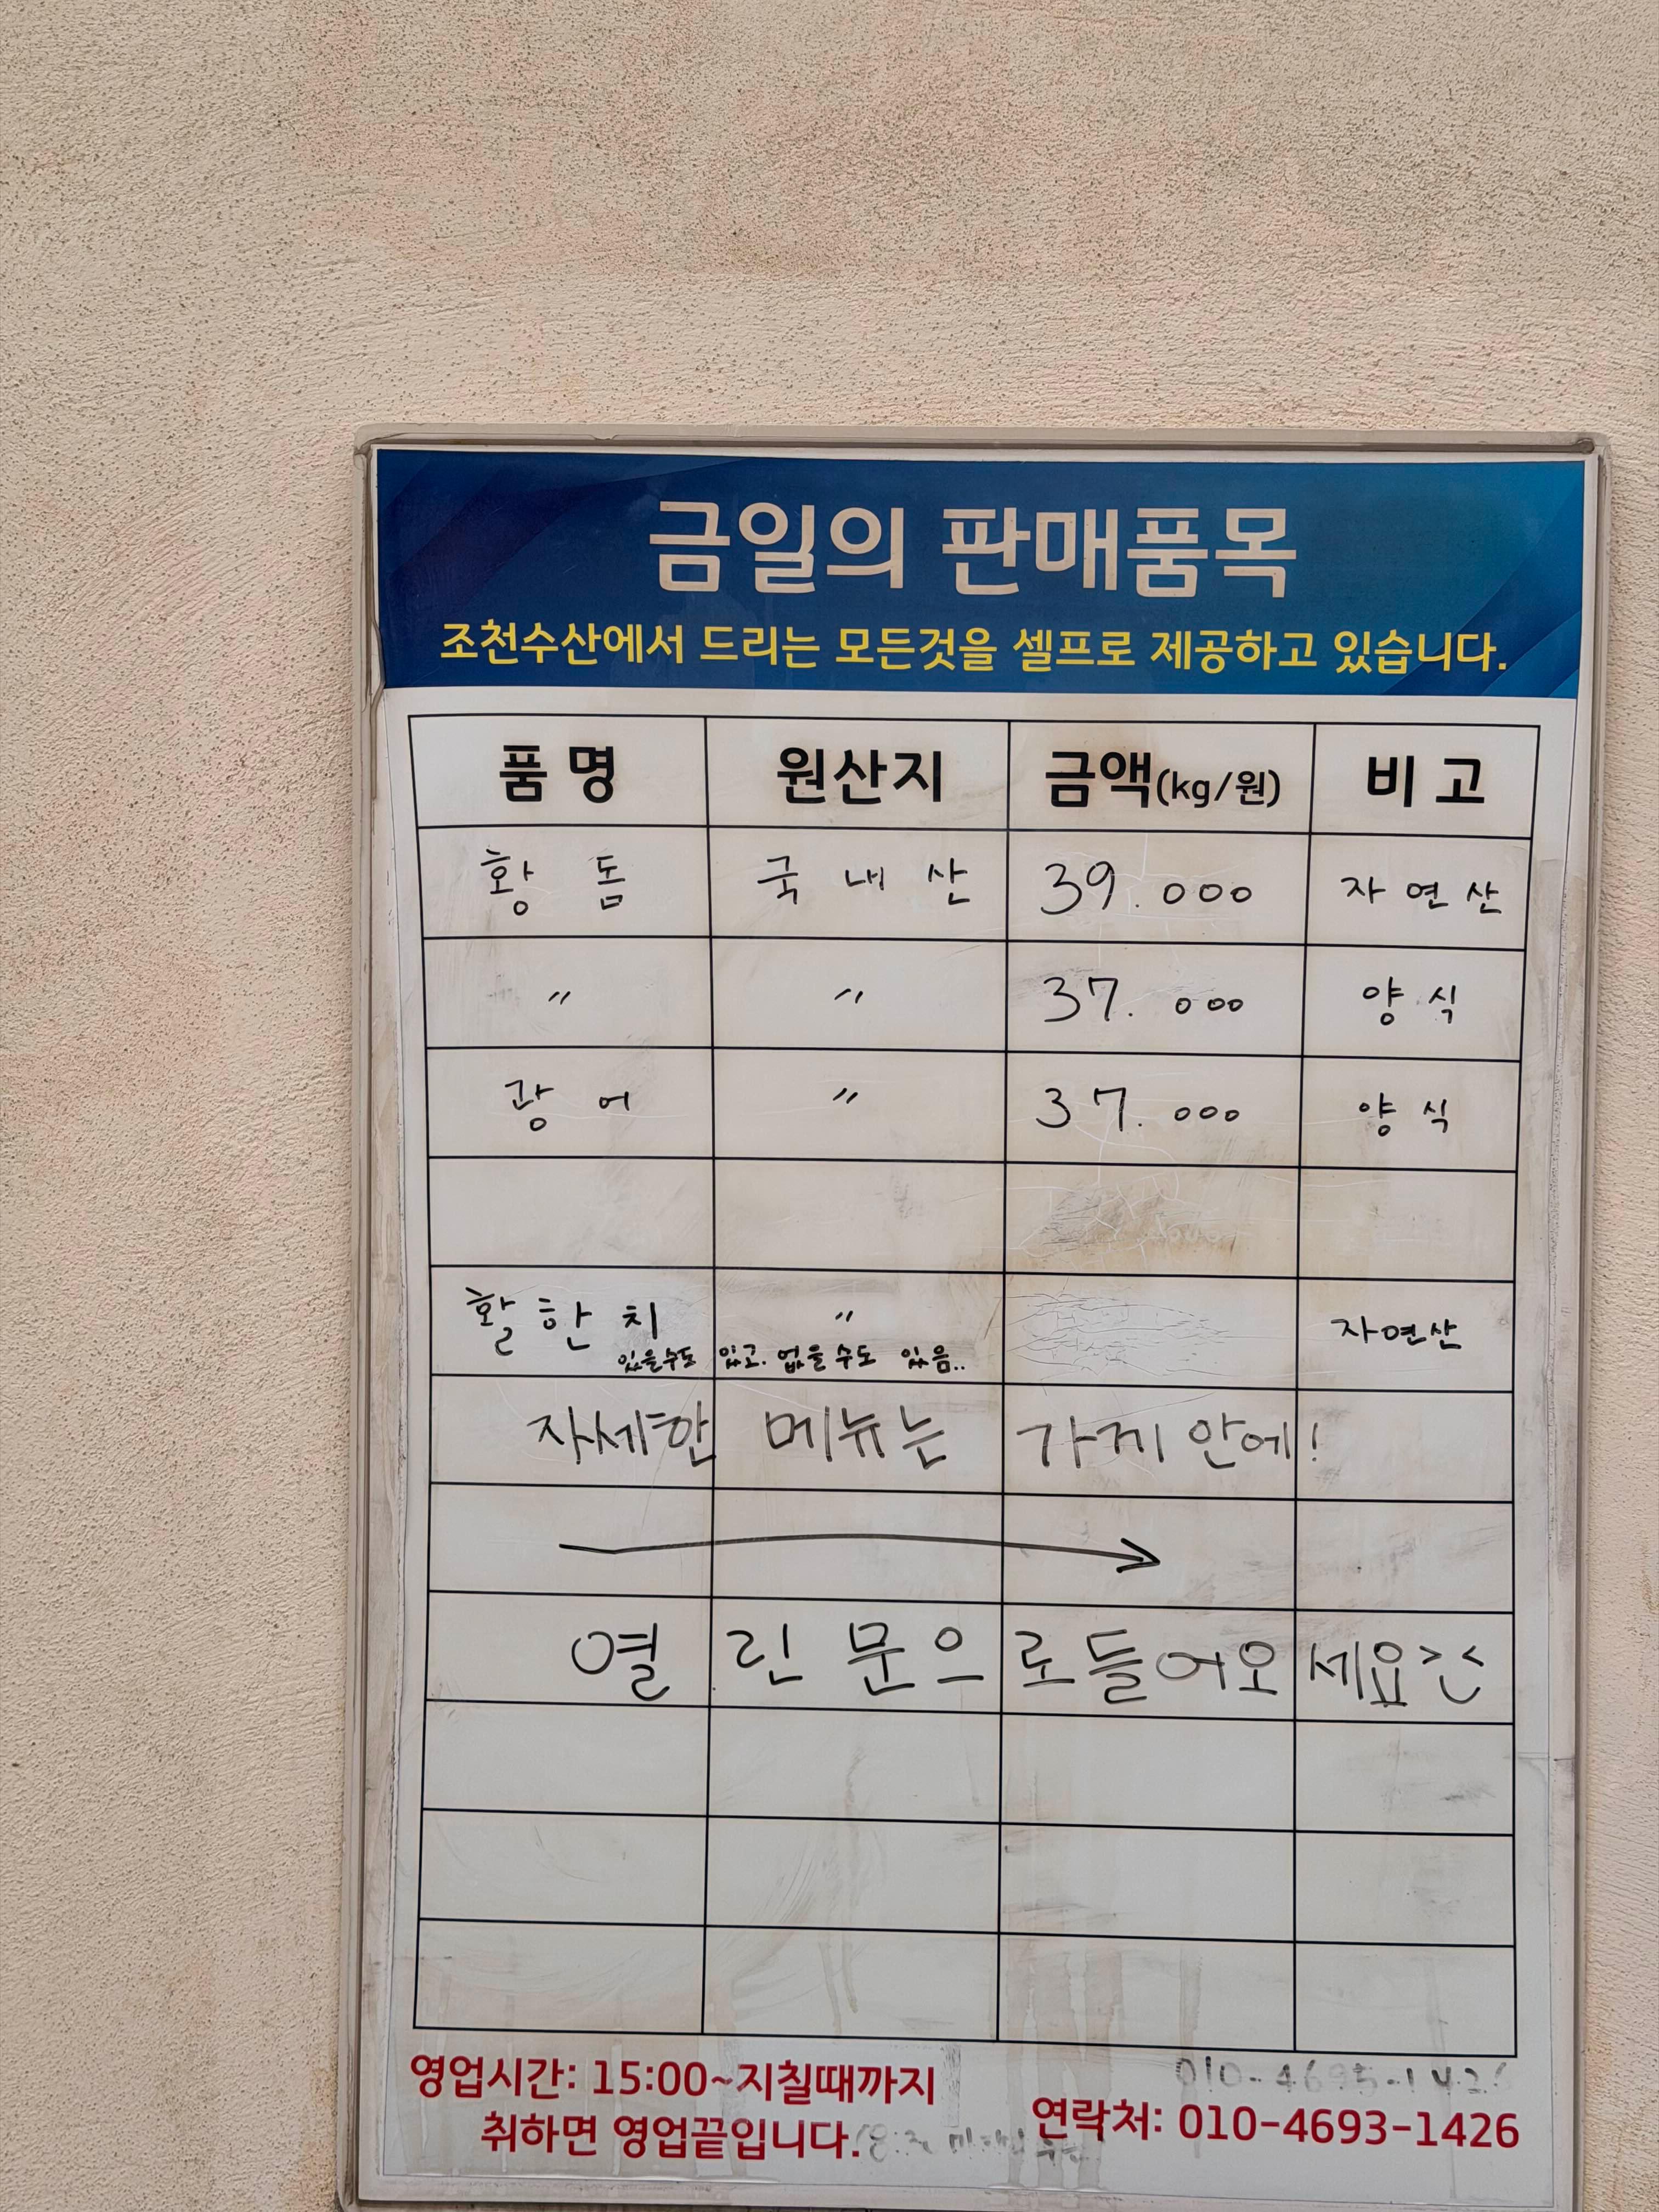 금일의 판매품목
조천수산에서 드리는 모든것을 셀프로 제공하고 있습니다.
품명 원산지 금액(kg/원) 비고
황돔 국내산 39.000 자연산
〃 〃 37.000 양식
광어 〃 37.000 양식
활한치 〃 자연산
있을수도 있고. 없을수도 있음..
자세한 메뉴는 가게 안에!
열린 문으로들어오세요
영업시간: 15:00~지칠때까지
취하면 영업끝입니다.
연락처: 010-4693-1426